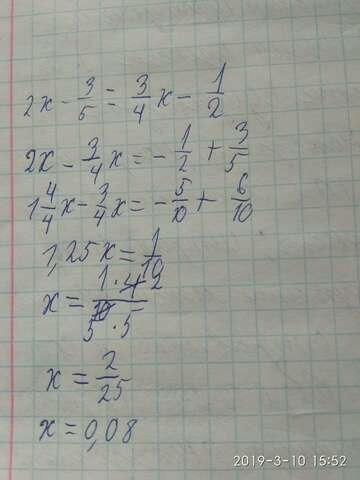 2x - 3/5 = 3/4 x - 1/2
2x - 3/4 x = - 1/2 + 3/5
1 4/4 x - 3/4 x = - 5/10 + 6/10
1,25x = 1/10
x = 1·4 2/10 5·5
x = 2/25
x = 0,08
2019-3-10 15:52